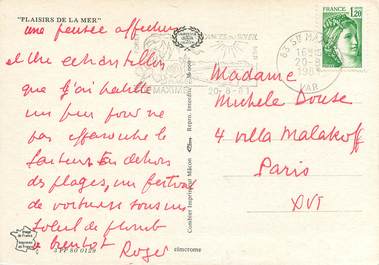 "PLAISIRS DE LA MER"
une pensée affectueuse
et Une echantillon
que j'ai habillé
un peu pour ne
pas effaroucher le
facteur. En dehors
des plages, un festival
de voitures sous un
soleil de plomb
a bientot
Roger
Madame
Michele Douse
4 villa Malakoff
Paris
XVI
FRANCE
1,20
83 STE MA
16H15
20-8
1981
VAR
MAXIME
20-8-81
Combier Imprimeur Mâcon
Repro. Interdite
cimcrome